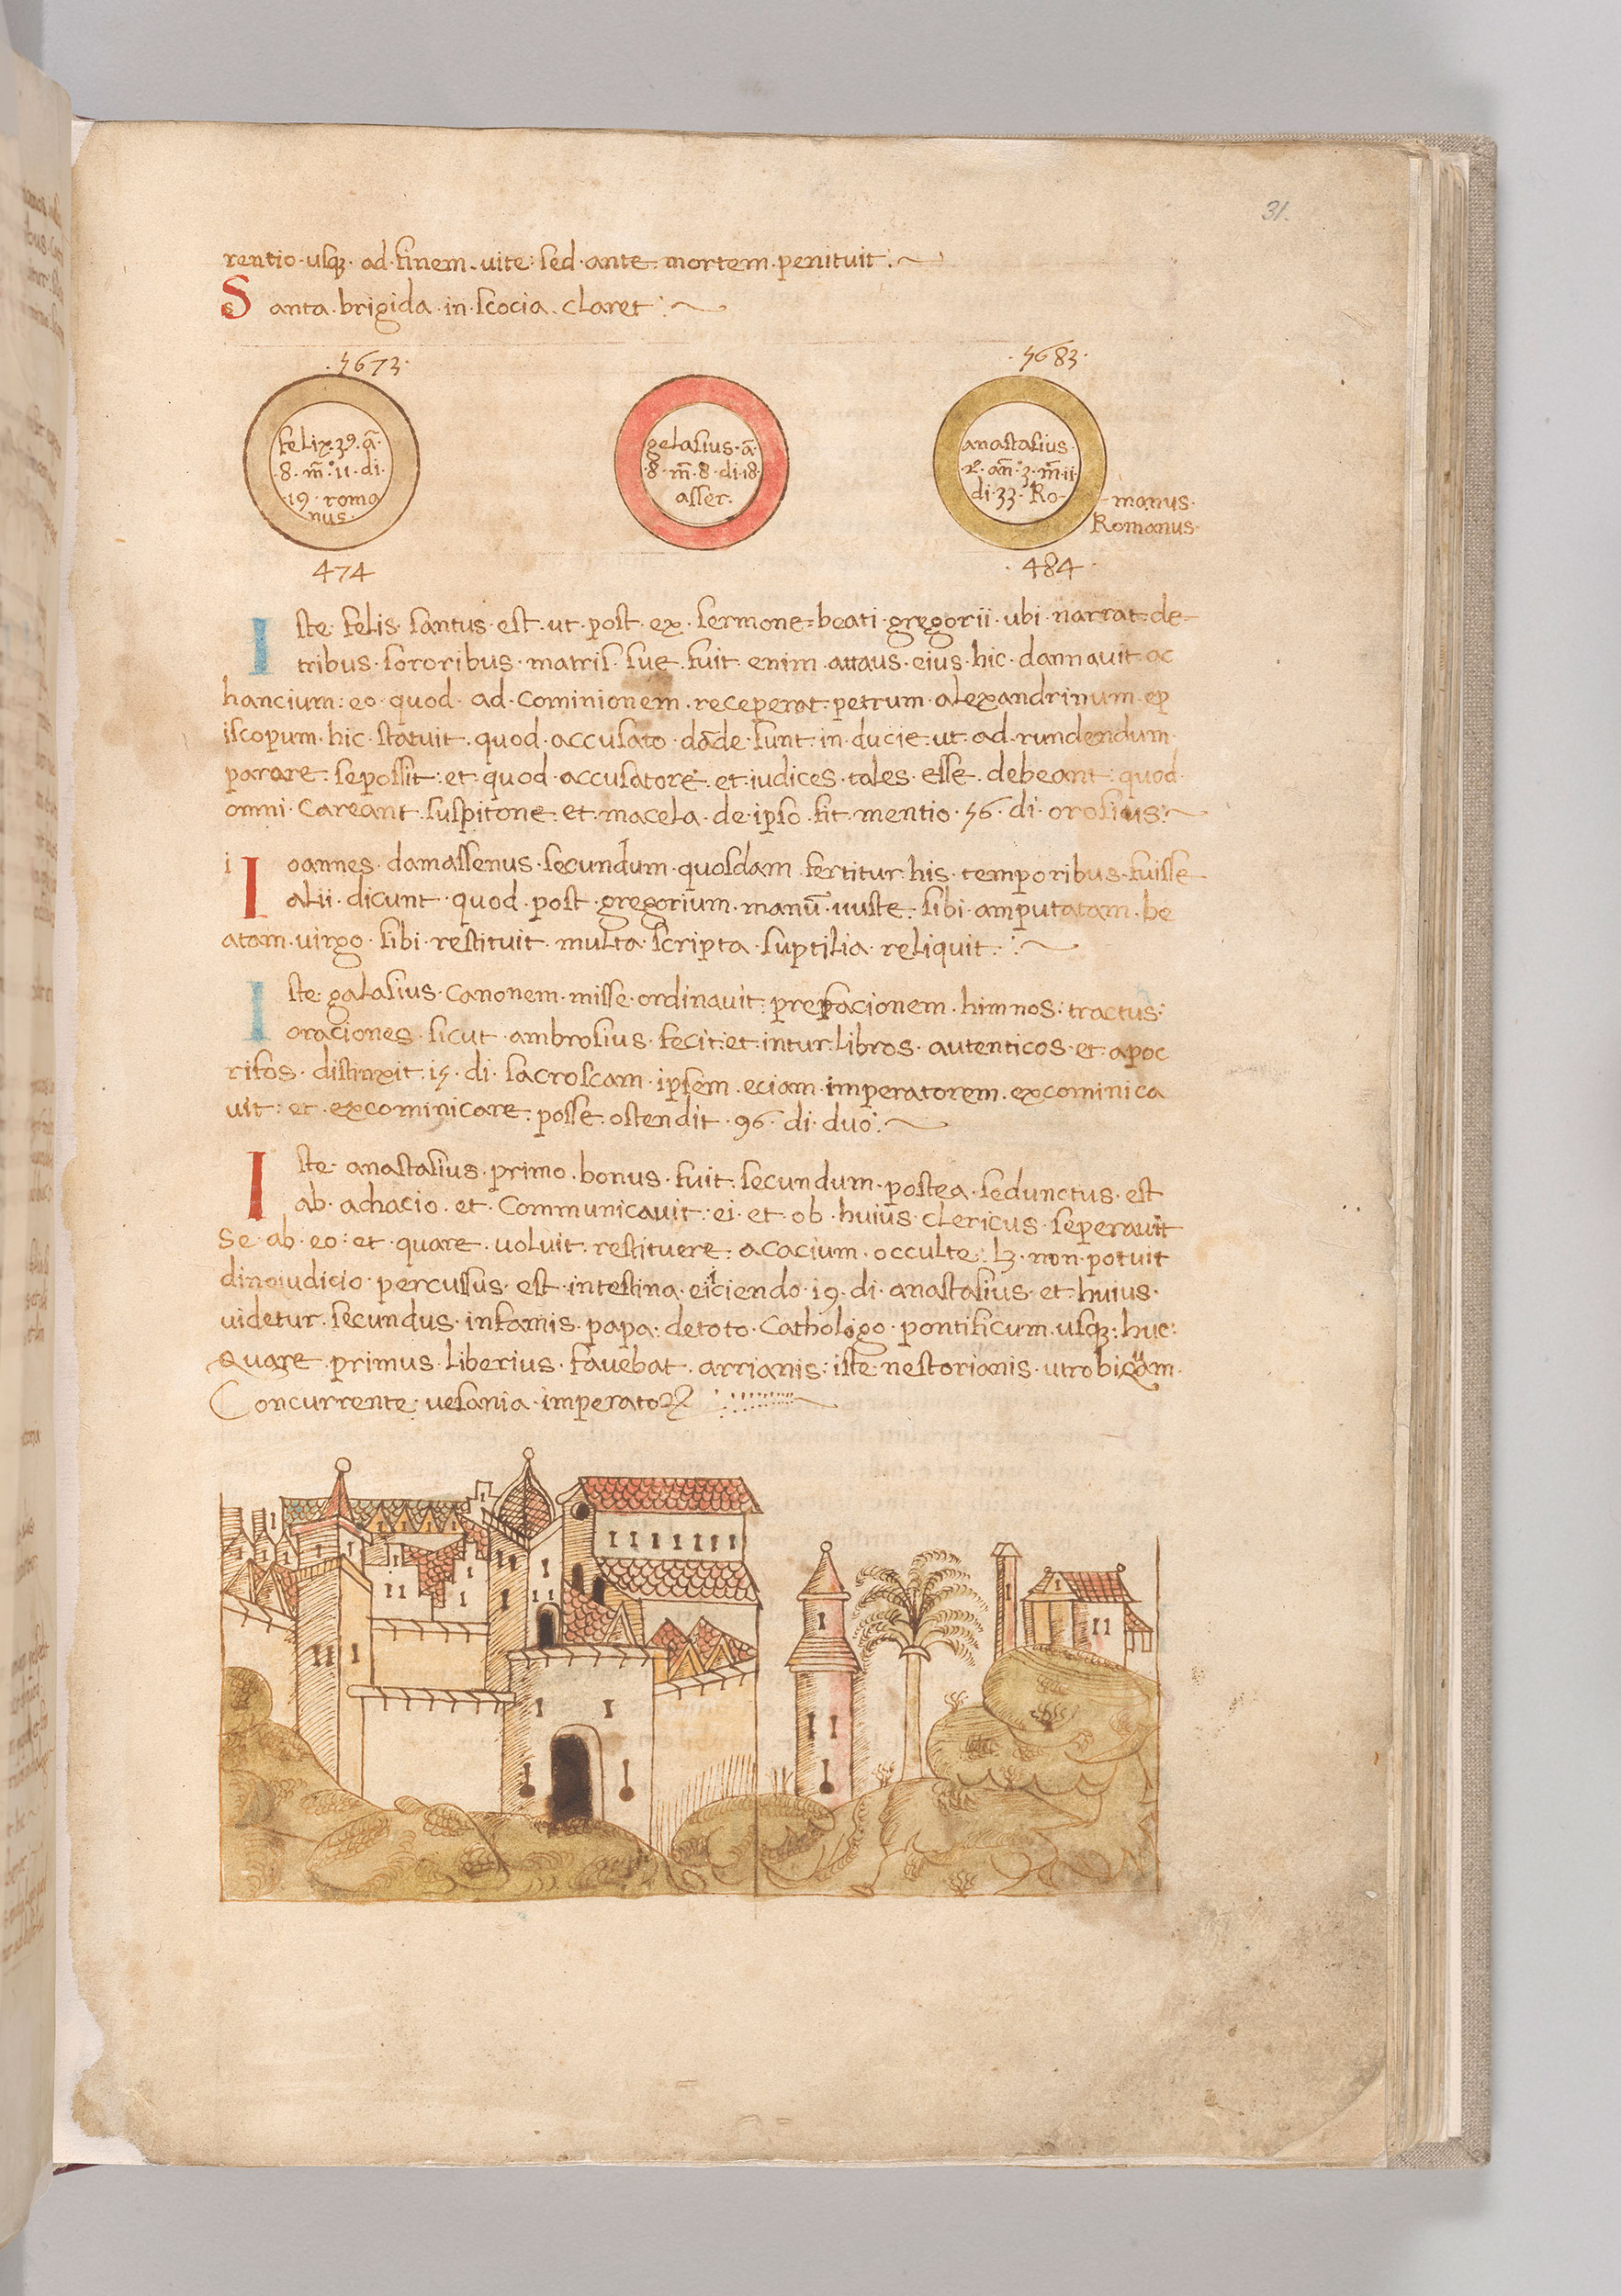 31.
rentio · usqz · ad · finem · uite : sed · ante · mortem · penituit :
Santa · brigida · in · scocia · claret :
· 5673 ·
felix · 39 · ā ·
· 8 · m̄ · 11 · di ·
· 19 · roma
nus ·
474
gelasius · ā ·
· 8 · m̄ · 8 · di · 18 ·
asser ·
· 5683 ·
anastasius ·
2º · an̄ · 3 · m̄ · 11
di · 33 · Ro-
-manus ·
Romanus ·
· 484 ·
Iste · felis · santus · est · ut · post · ex · sermone = beati · gregorii · ubi · narrat · de-
tribus · sororibus · matris · sue · fuit · enim · attaus · eius · hic · dannauit · ac
hancium : eo · quod · ad · cominionem · receperat · petrum · alexandrinum · ep
iscopum · hic · statuit · quod · accusato · dāde · sunt · in · ducie · ut · ad · rundendum ·
parare · sepossit : et · quod · accusatore · et · iudices · tales · esse · debeant : quod ·
omni · careant · suspitone · et · macela · de · ipso · fit · mentio · 56 · di · orosius :
i Ioannes · damassenus · secundum · quosdam · fertitur · his · temporibus · fuisse
alii · dicunt · quod · post · gregorium · manū · iuste · sibi · amputatam · be
atam · uirgo · sibi · restituit · multa · scripta · suptilia · reliquit :
Iste · galasius · canonem · misse · ordinauit : prefacionem · himnos : tractus :
oraciones · sicut · ambrosius · fecit : et · intur · libros · autenticos · et · apoc
rifos · distinxit · 15 · di · sacroscam · ipsem · eciam · imperatorem · excominica
uit : et · excominicare · posse · ostendit · 96 · di · duo :
Iste · anastasius · primo · bonus · fuit · secundum · postea · sedunctus · est
ab · achacio · et · communicauit : ei · et · ob · huius · clericus · seperauit
Se · ab · eo : et · quare · uoluit · restituere · acacium · occulte : lz · non · potuit
dinoiudicio · percussus · est · intestina · eiciendo · 19 · di · anastasius · et · huius ·
uidetur · secundus · infamis · papa : detoto · cathologo · pontificum · usqz : huc :
Quare · primus · liberius · fauebat · arrianis : iste · nestorianis · utrobiqam ·
Concurrente · uesania · imperator